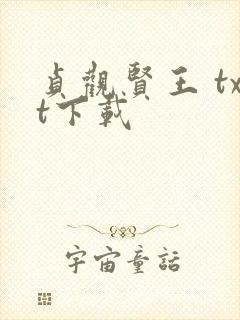 貞觀賢王 tx
t下載
宇宙童話